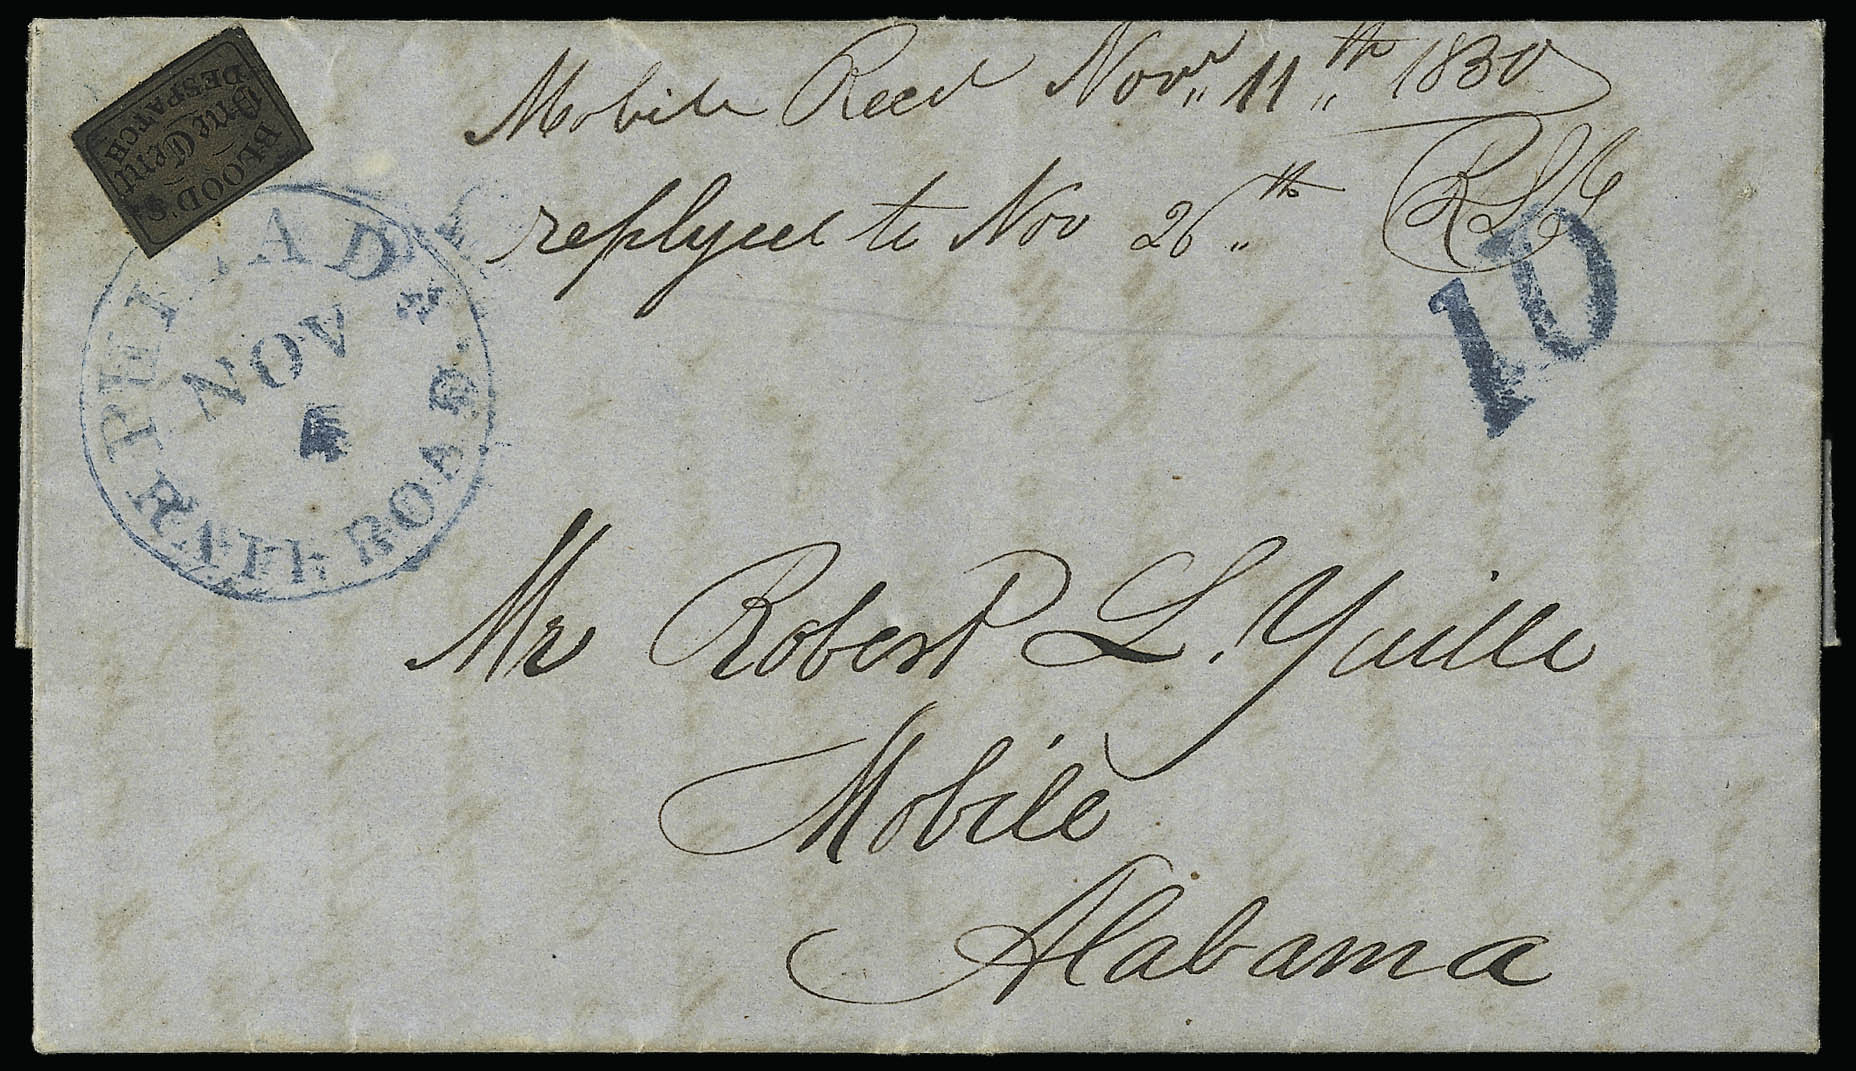 BLOOD'S
One Cent
DESPATCH
Mobile Recd Novr 11th 1850
replyed to Nov 26th RLY
PHILADA
NOV
RAIL ROAD.
10
Mr Robert L. Yuille
Mobile
Alabama